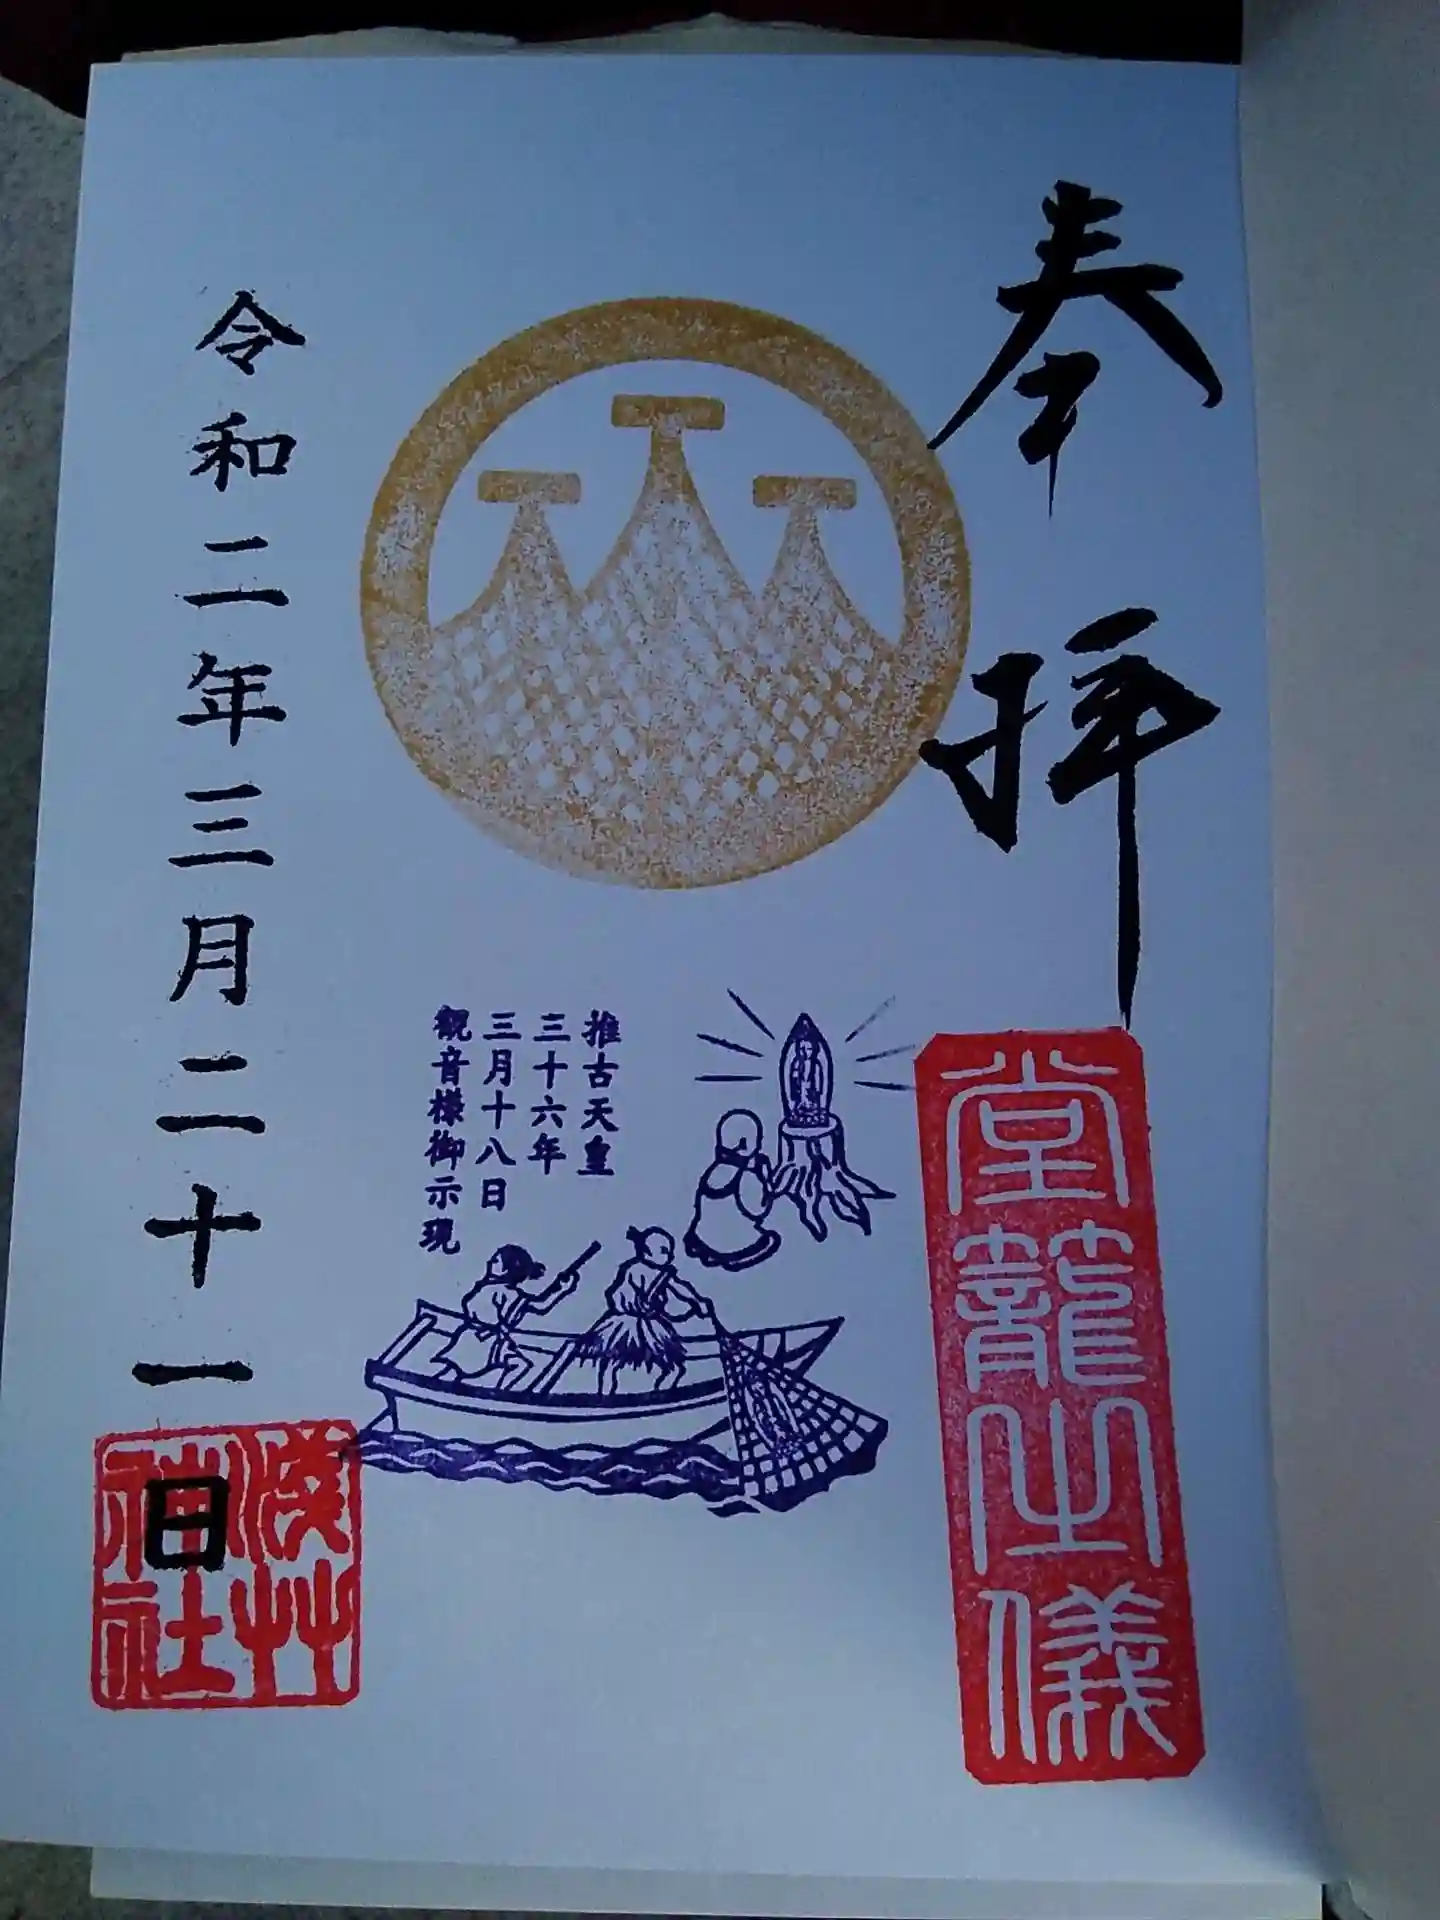 奉拝
堂籠之儀
推古天皇
三十六年
三月十八日
観音様御示現
令和二年三月二十一日
淺艸神社